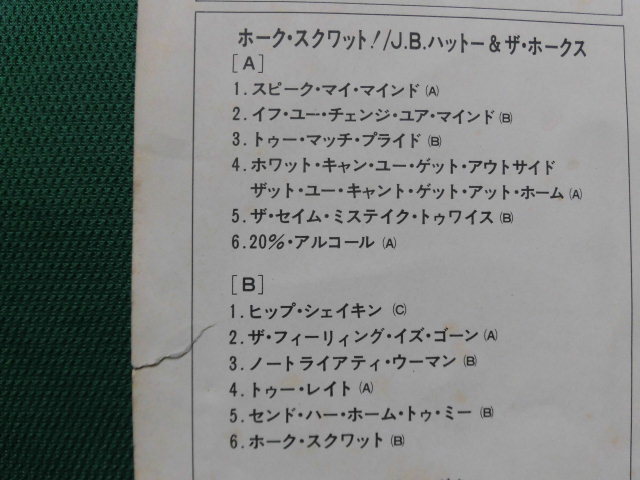 ホーク・スクワット!/J.B.ハットー&ザ・ホークス
[A]
1.スピーク・マイ・マインド(A)
2.イフ・ユー・チェンジ・ユア・マインド(B)
3.トゥー・マッチ・プライド(B)
4.ホワット・キャン・ユー・ゲット・アウトサイド
ザット・ユー・キャント・ゲット・アット・ホーム(A)
5.ザ・セイム・ミステイク・トゥワイス(B)
6.20%・アルコール(A)
[B]
1.ヒップ・シェイキン(C)
2.ザ・フィーリィング・イズ・ゴーン(A)
3.ノートライアティ・ウーマン(B)
4.トゥー・レイト(A)
5.センド・ハー・ホーム・トゥ・ミー(B)
6.ホーク・スクワット(B)